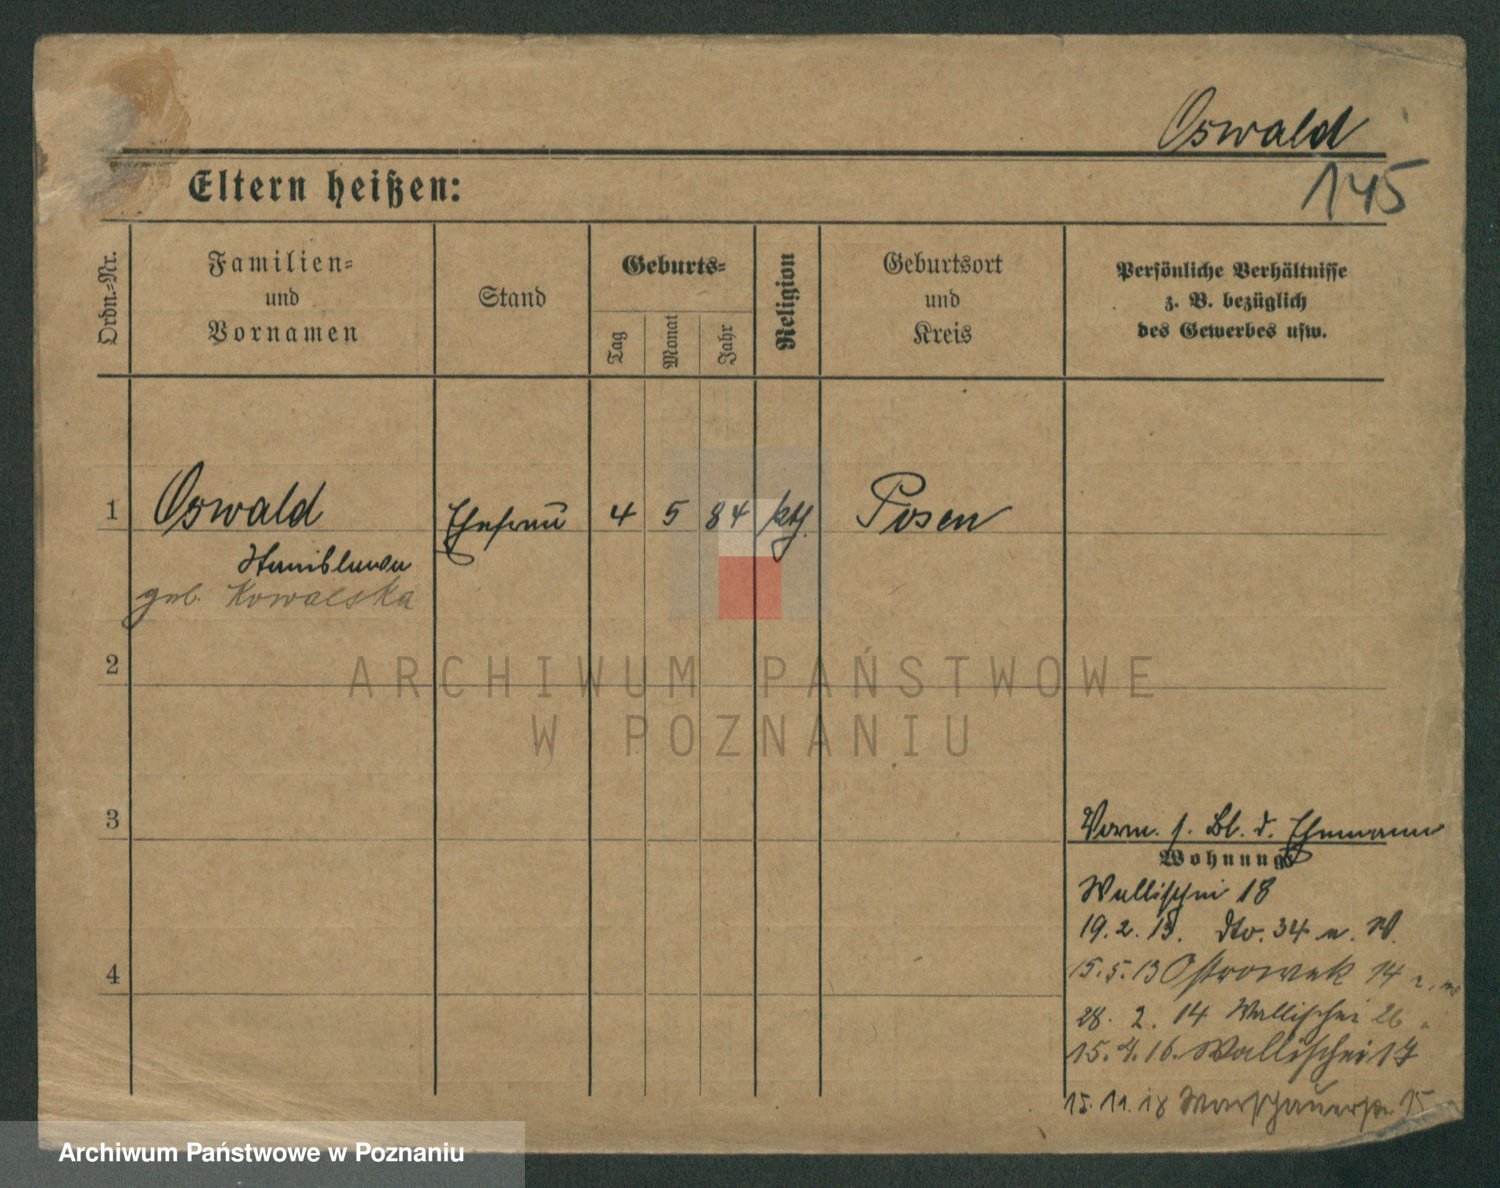 Oswald
145
Eltern heißen:
Ordn.-Nr.
Familien-
und
Vornamen
Stand
Geburts-
Tag
Monat
Jahr
Religion
Geburtsort
und
Kreis
Persönliche Verhältnisse
z. B. bezüglich
des Gewerbes usw.
1 Oswald Ehefrau 4 5 84 kth. Posen
Stanislawa
geb. Kowalska
2
ARCHIWUM PAŃSTWOWE
W POZNANIU
3
Verm. s. Bl. d. Ehemann
Wohnung
Wallischei 18
19. 2. 13. dto. 34 a. W.
4
15. 5. 13 Ostrowek 14
28. 2. 14 Wallischei 26
15. 4. 16. Wallischei 17
15. 11. 18 Warschauerstr. 15
Archiwum Państwowe w Poznaniu